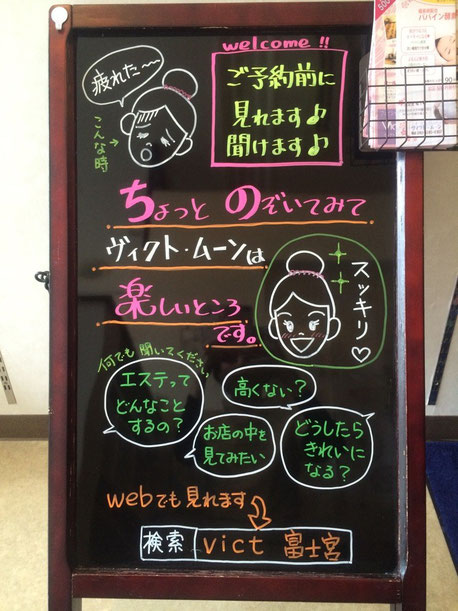 welcome !!
ご予約前に
見れます♪
聞けます♪
疲れた〜〜
こんな時→
ちょっと のぞいてみて
ヴィクト・ムーンは
楽しいところ
です。
スッキリ♡
何でも聞いてください
エステって
どんなこと
するの?
高くない?
お店の中を
見てみたい
どうしたら
きれいに
なる?
webでも見れます
検索 vict 富士宮
パパイン酵素